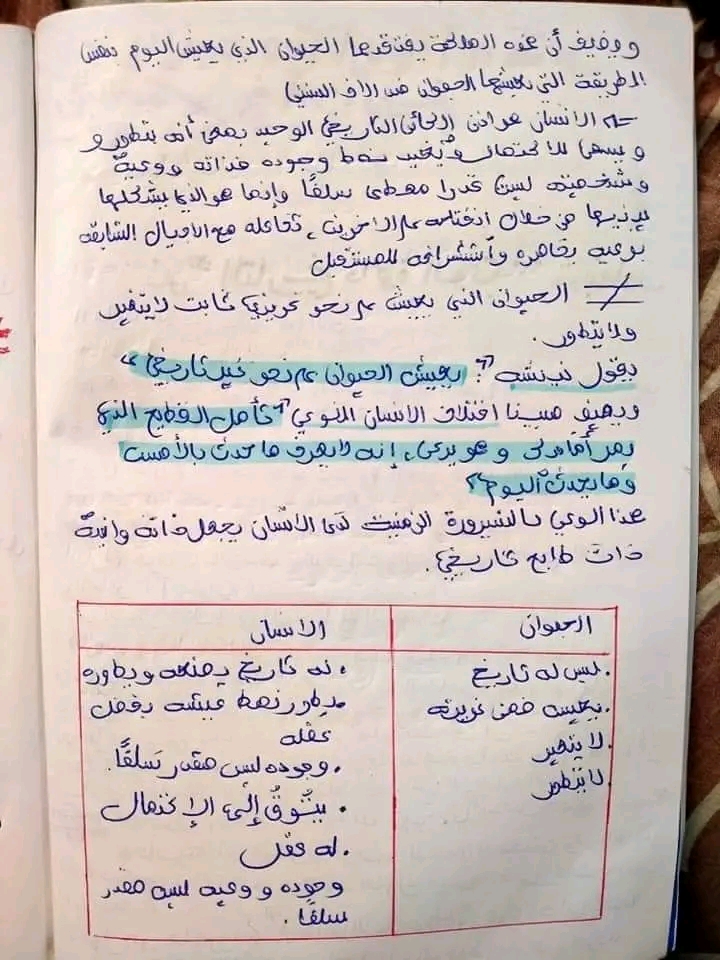 ويضيف أن هذه الملكة يفتقدها الحيوان الذي يعيش اليوم بنفس
الطريقة التي يعيشها الحيوان منذ آلاف السنين
الانسان هو اذن الكائن التاريخي الوحيد بمعنى أنه يتطور و
و يسعى للاكتمال و يُغير نمط وجوده فذاته ووعيه
و شخصيته ليس قدرا معطى سلفًا وإنما هو الذي يشكلها
من خلال انفتاحه على الاخرين، تفاعله مع الاجيال السابقة
بوعيه بحاضره واستشرافه للمستقبل
≠ الحيوان الذي يعيش على نحو غريزي ثابت لا يتغير
ولا يتطور.
يقول نيتشه: "يعيش الحيوان على نحو غير تاريخي"
ويضيف مبينا اختلاف الانسان النوعي "تأمل القطيع الذي
يمر أمامك و هو يرعى، إنه لا يعرف ما حدث بالأمس
وما يحدث اليوم"
هذا الوعي بالسيرورة الزمنية لدى الانسان يجعل ذاته وانيته
ذات طابع تاريخي.
الحيوان
الانسان
. ليس له تاريخ
. يعيش ضمن غريزته
. لا يتغير
. لا يتطور
. له تاريخ يصنعه ويطوره
. يطور نمط عيشه بفضل
عقله
. وجوده ليس مقدر سلفًا.
. يتُوقُ إلى الاكتمال
. له عقل
وجوده و وعيه ليس مقدر
سلفًا.